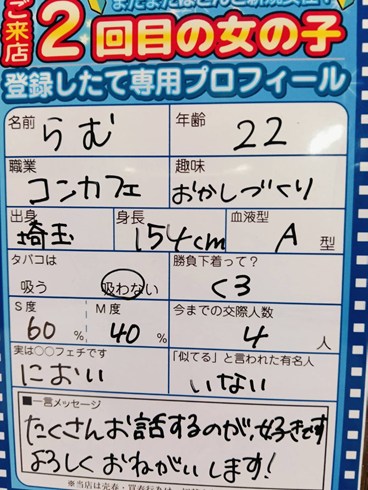 ご来店
2回目の女の子
登録したて専用プロフィール
名前 らむ 年齢 22
職業 コンカフェ 趣味 おかしづくり
出身 埼玉 身長 154cm 血液型 A 型
タバコは 吸う 吸わない 勝負下着って? くろ
S度 60 % M度 40 % 今までの交際人数 4 人
実は○○フェチです におい 「似てる」と言われた有名人 いない
■一言メッセージ
たくさんお話するのが、好きです
よろしくおねがいします!